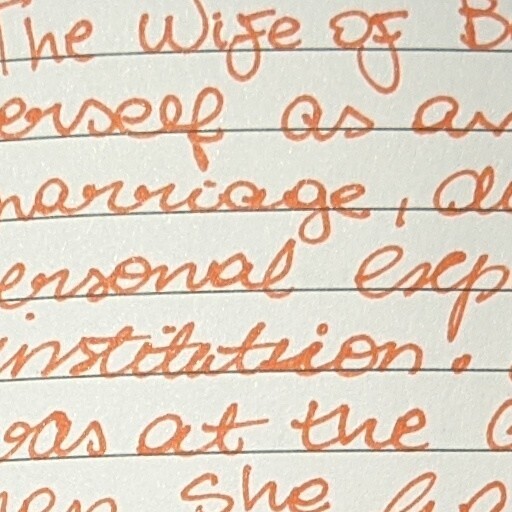 The Wife of B
erself as an
marriage, a
ersonal exp
institution.
was at the
she